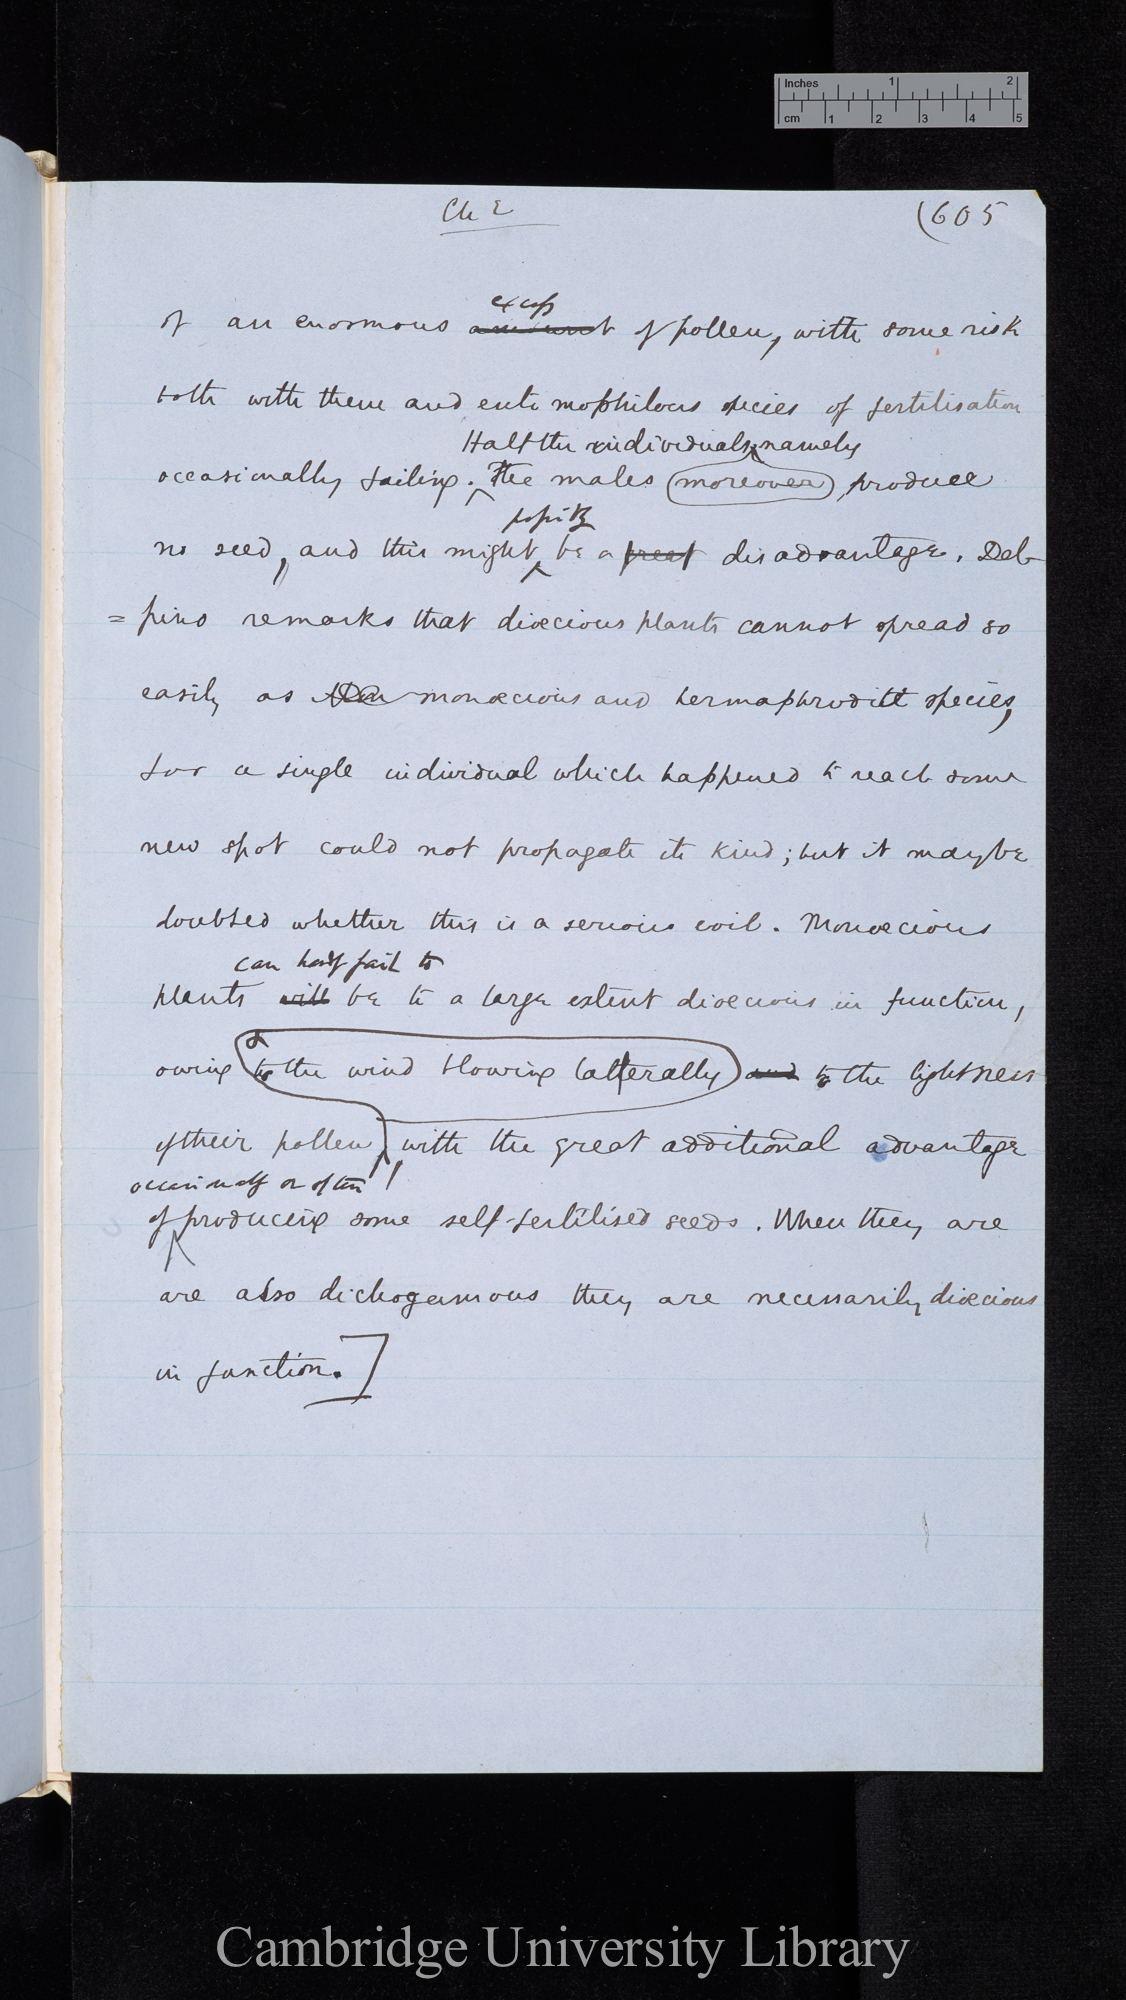 Inches 1 2
cm 1 2 3 4 5
Ch X
(605
excess
of an enormous amount of pollen, with some risk
both with them and entomophilous species of fertilisation
Half the individuals, namely
occasionally failing. The males moreover produce
possibly
no seed, and this might be a great disadvantage. Del-
=pino remarks that diœcious plants cannot spread so
easily as monœcious and hermaphrodite species,
for a single individual which happened to reach some
new spot could not propagate its kind; but it may be
doubted whether this is a serious evil. Monœcious
can hardly fail to
plants will be to a large extent diœcious in function,
&
owing to the wind blowing latterally and to the lightness
of their pollen, with the great additional advantage
occasionally or often
of producing some self-fertilised seeds. When they are
are also dichogamous they are necessarily diœcious
in function.]
Cambridge University Library